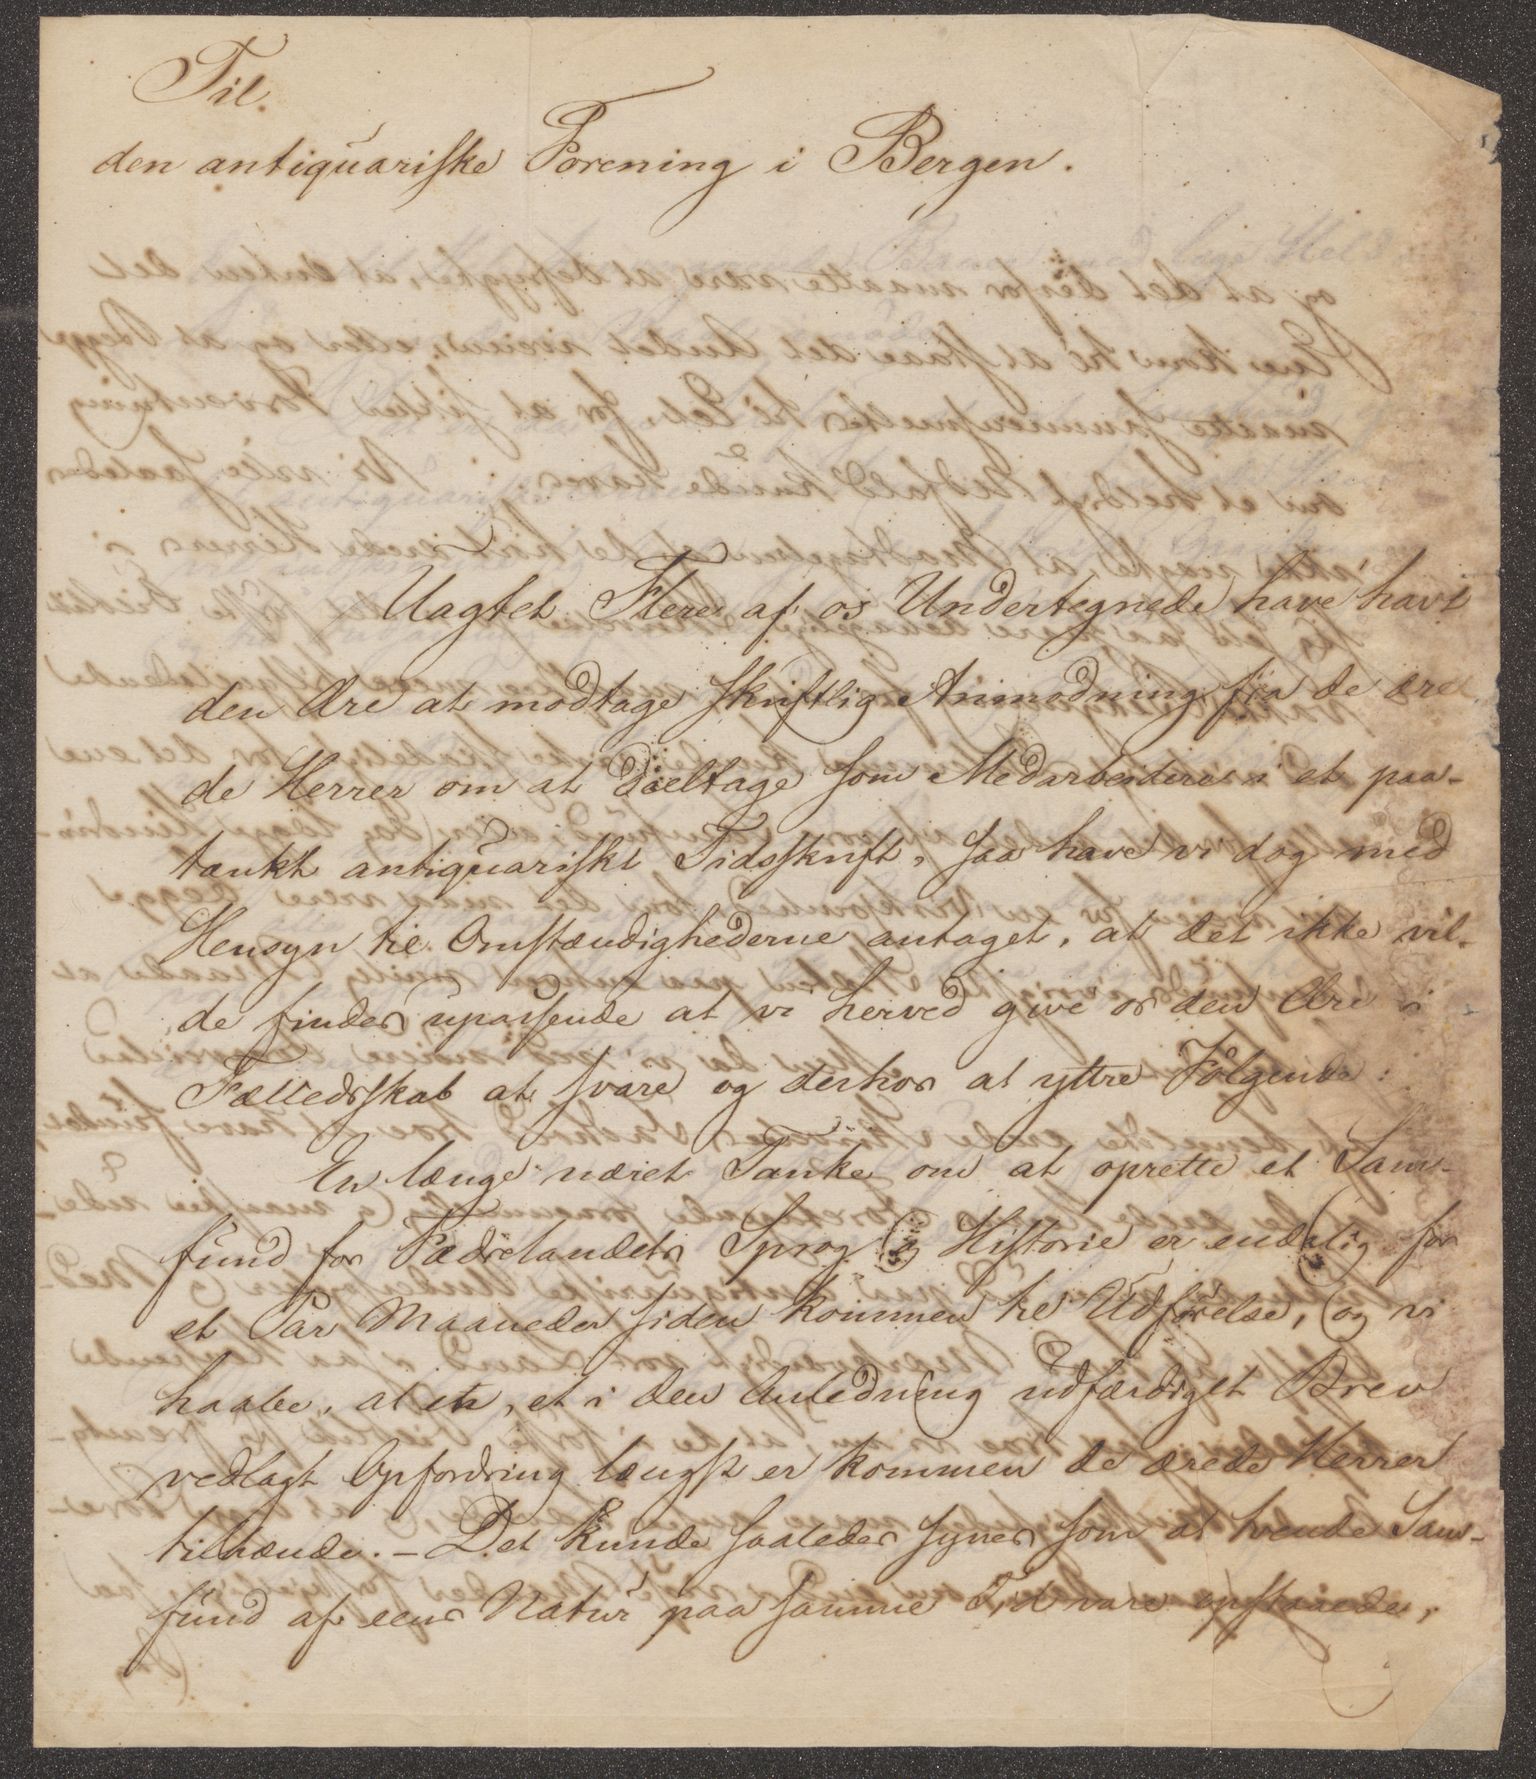 Til
den antiquariske Forening i Bergen.
Uagtet Flere af os Undertegnede have havt
den Ære at modtage skriftlig Anmodning fra de ære
de Herrer om at deeltage som Medarbeidere i et paa-
tænkt antiquariskt Tidsskrift, saa have vi dog med
Hensyn til Omstændighederne antaget, at det ikke vil-
de findes upassende at vi herved give os den Ære i
Fælledsskab at svare og derhos at yttre Følgende:
En længe næret Tanke om at oprette et Sam-
fund for Fædrelandets Sprog og Historie er endelig for
et Par Maaneder siden kommen til Udførelse, og vi
haabe, at en, et i den Anledning udfærdiget Brev
vedlagt Opfordring længst er kommen de ærede Herrer
tilhænde. – Det kunde saaledes synes som at tvende Sam-
fund af eens Natur paa samme Tid vare opstaaede,